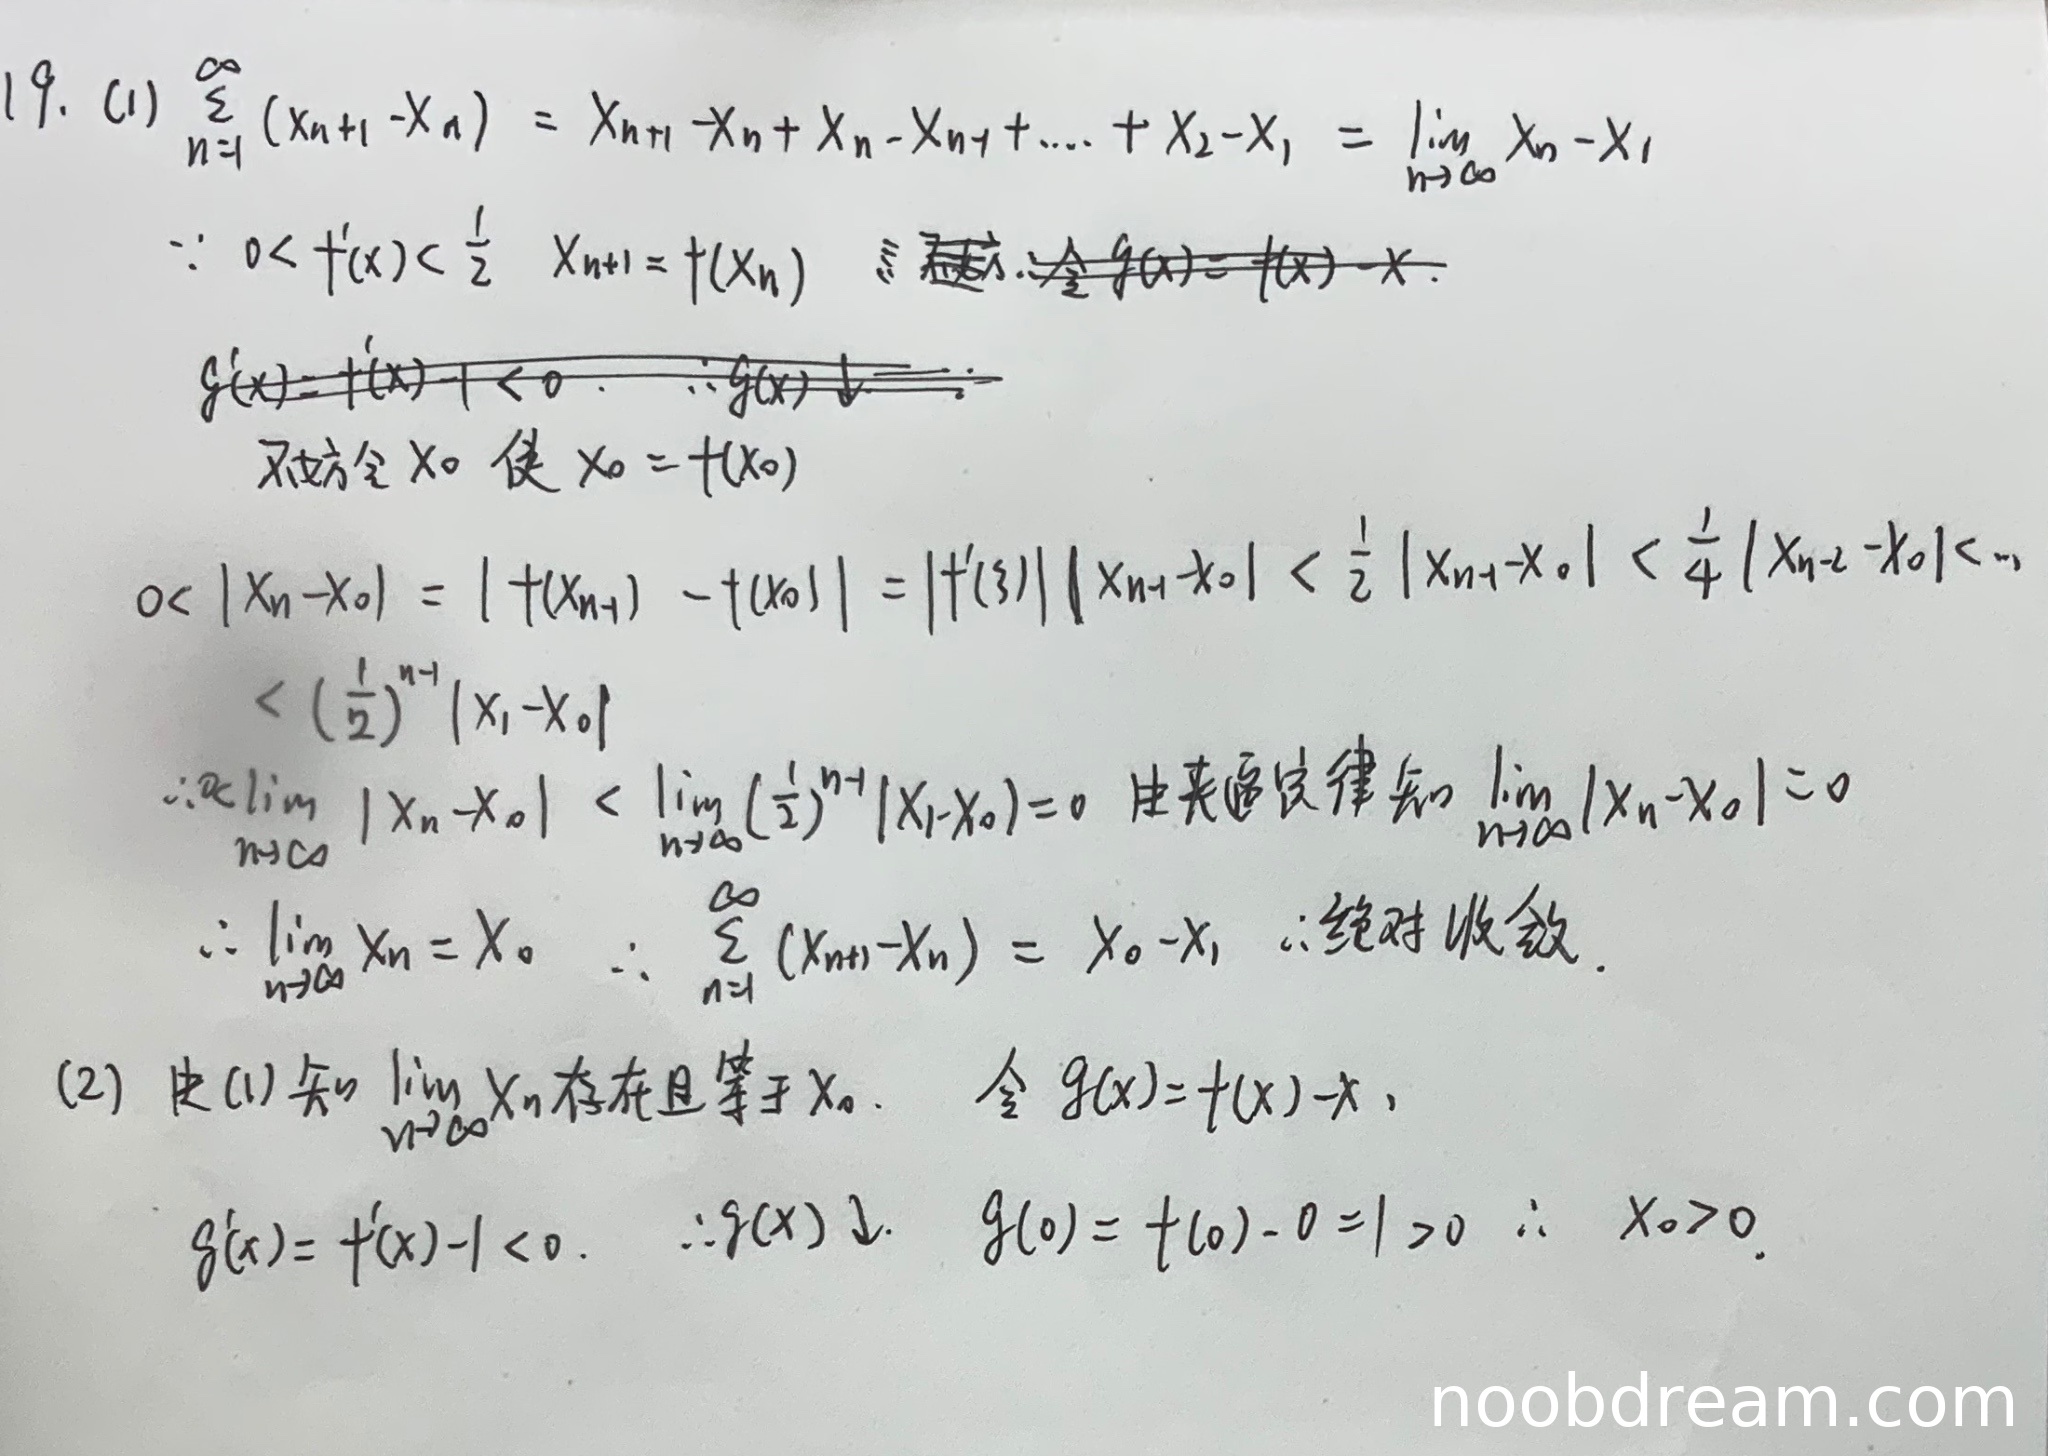 19. (1) ∞∑n=1 (xn+1 - xn) = xn+1 - xn + xn - xn-1 + .... + x2 - x1 = lim n→∞ xn - x1
∵ 0 < f'(x) < 1/2 xn+1 = f(xn) 不妨 ∴令 g(x) = f(x) - x.
g'(x) = f'(x) - 1 < 0. ∴ g(x) ↓
不妨令 x0 使 x0 = f(x0)
0 < |xn - x0| = |f(xn-1) - f(x0)| = |f'(ξ)| |xn-1 - x0| < 1/2 |xn-1 - x0| < 1/4 |xn-2 - x0| < ...
< (1/2)^n-1 |x1 - x0|
∴ 0< lim n→∞ |xn - x0| < lim n→∞ (1/2)^n-1 |x1 - x0) = 0 由夹逼定律知 lim n→∞ |xn - x0| = 0
∴ lim n→∞ xn = x0 ∴ ∞∑n=1 (xn+1 - xn) = x0 - x1 ∴绝对收敛.
(2) 由(1)知 lim n→∞ xn 存在且等于 x0. 令 g(x) = f(x) - x,
g'(x) = f'(x) - 1 < 0. ∴ g(x) ↓. g(0) = f(0) - 0 = 1 > 0 ∴ x0 > 0.
noobdream.com